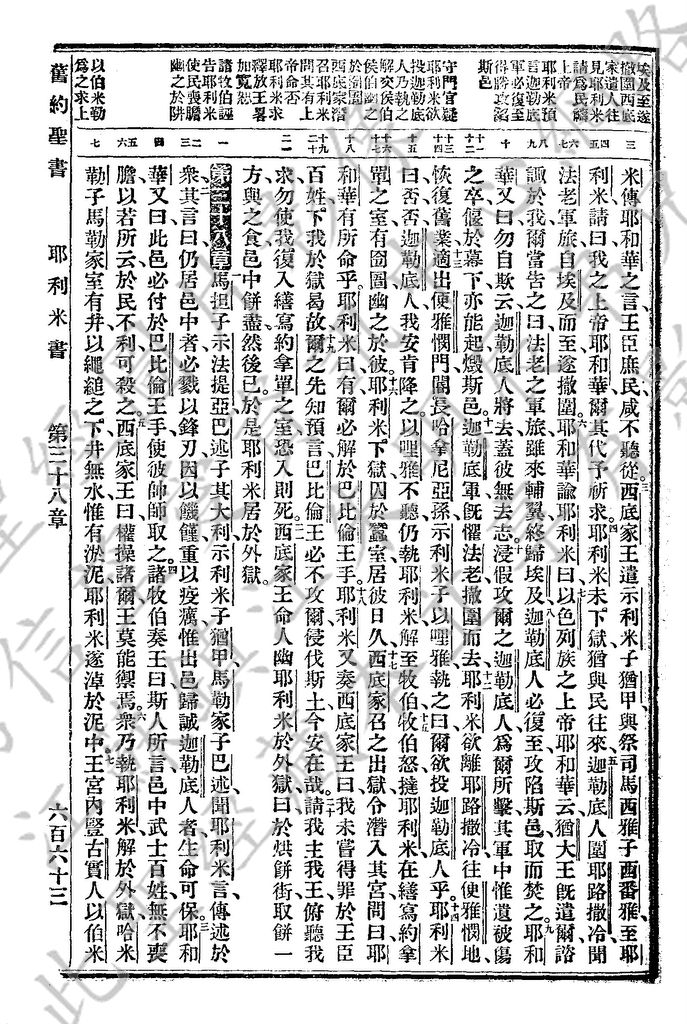 埃及至遂
撤圍西底
家遣人往
見耶利米
請爲民禱
上帝
耶利米預
言迦勒底
軍必復至
得勝攻陷
斯邑
守門官疑
耶利米欲
投迦勒底
人乃執之
解交侯伯
侯伯幽之
於囹圄
西底家潛
召耶利米
問其有上
帝命否
耶利米求
釋放王畧
加寬恕
諸牧伯誣
告耶利米
使民喪膽
幽之於阱
以伯米勒
爲之求上
三
四
五
六
七
八
九
十
十一
十二
十三
十四
十五
十六
十七
十八
十九
二十
二一
一
二
三
四
五
六
七
米傳耶和華之言王臣庶民咸不聽從西底家王遣示利米子猶甲與祭司馬西雅子西番雅至耶
利米請曰我之上帝耶和華爾其代予祈求耶利米未下獄猶與民往來迦勒底人圍耶路撒冷聞
法老軍旅自埃及而至遂撤圍耶和華諭耶利米曰以色列族之上帝耶和華云猶大王旣遣爾諮
諏於我爾當告之曰法老之軍旅雖來輔翼終歸埃及迦勒底人必復至攻陷斯邑取而焚之耶和
華又曰勿自欺云迦勒底人將去蓋彼無去志浸假攻爾之迦勒底人爲爾所擊其軍中惟遺被傷
之卒偃於幕下亦能起燬斯邑迦勒底軍旣懼法老撤圍而去耶利米欲離耶路撒冷往便雅憫地
恢復舊業適出便雅憫門閽長哈拿尼亞孫示利米子以哩雅執之曰爾欲投迦勒底人乎耶利米
曰否否迦勒底人我安肯降之以哩雅不聽仍執耶利米解至牧伯牧伯怒撻耶利米在繕寫約拿
單之室有囹圄幽之於彼耶利米下獄囚於蠶室居彼日久西底家召之出獄令潛入其宮問曰耶
和華有所命乎耶利米曰有爾必解於巴比倫王手耶利米又奏西底家王曰我未嘗得罪於王臣
百姓下我於獄曷故爾之先知預言巴比倫王必不攻爾侵伐斯土今安在哉請我主我王俯聽我
求勿使我復入繕寫約拿單之室恐入則死西底家王命人幽耶利米於外獄曰於烘餅街取餅一
方與之食邑中餅盡然後已於是耶利米居於外獄
第三十八章馬担子示法提亞巴述子其大利示利米子猶甲馬勒家子巴述聞耶利米言傳述於
衆其言曰仍居邑中者必戮以鋒刃因以饑饉重以疫癘惟出邑歸誠迦勒底人者生命可保耶和
華又曰此邑必付於巴比倫王手使彼帥師取之諸牧伯奏王曰斯人所言邑中武士百姓無不喪
膽以若所云於民不利可殺之西底家王曰權操諸爾王莫能禦焉衆乃執耶利米解於外獄哈米
勒子馬勒家室有井以繩縋之下井無水惟有淤泥耶利米遂淖於泥中王宮內豎古實人以伯米
舊約聖書　耶利米書　第三十八章　六百六十三